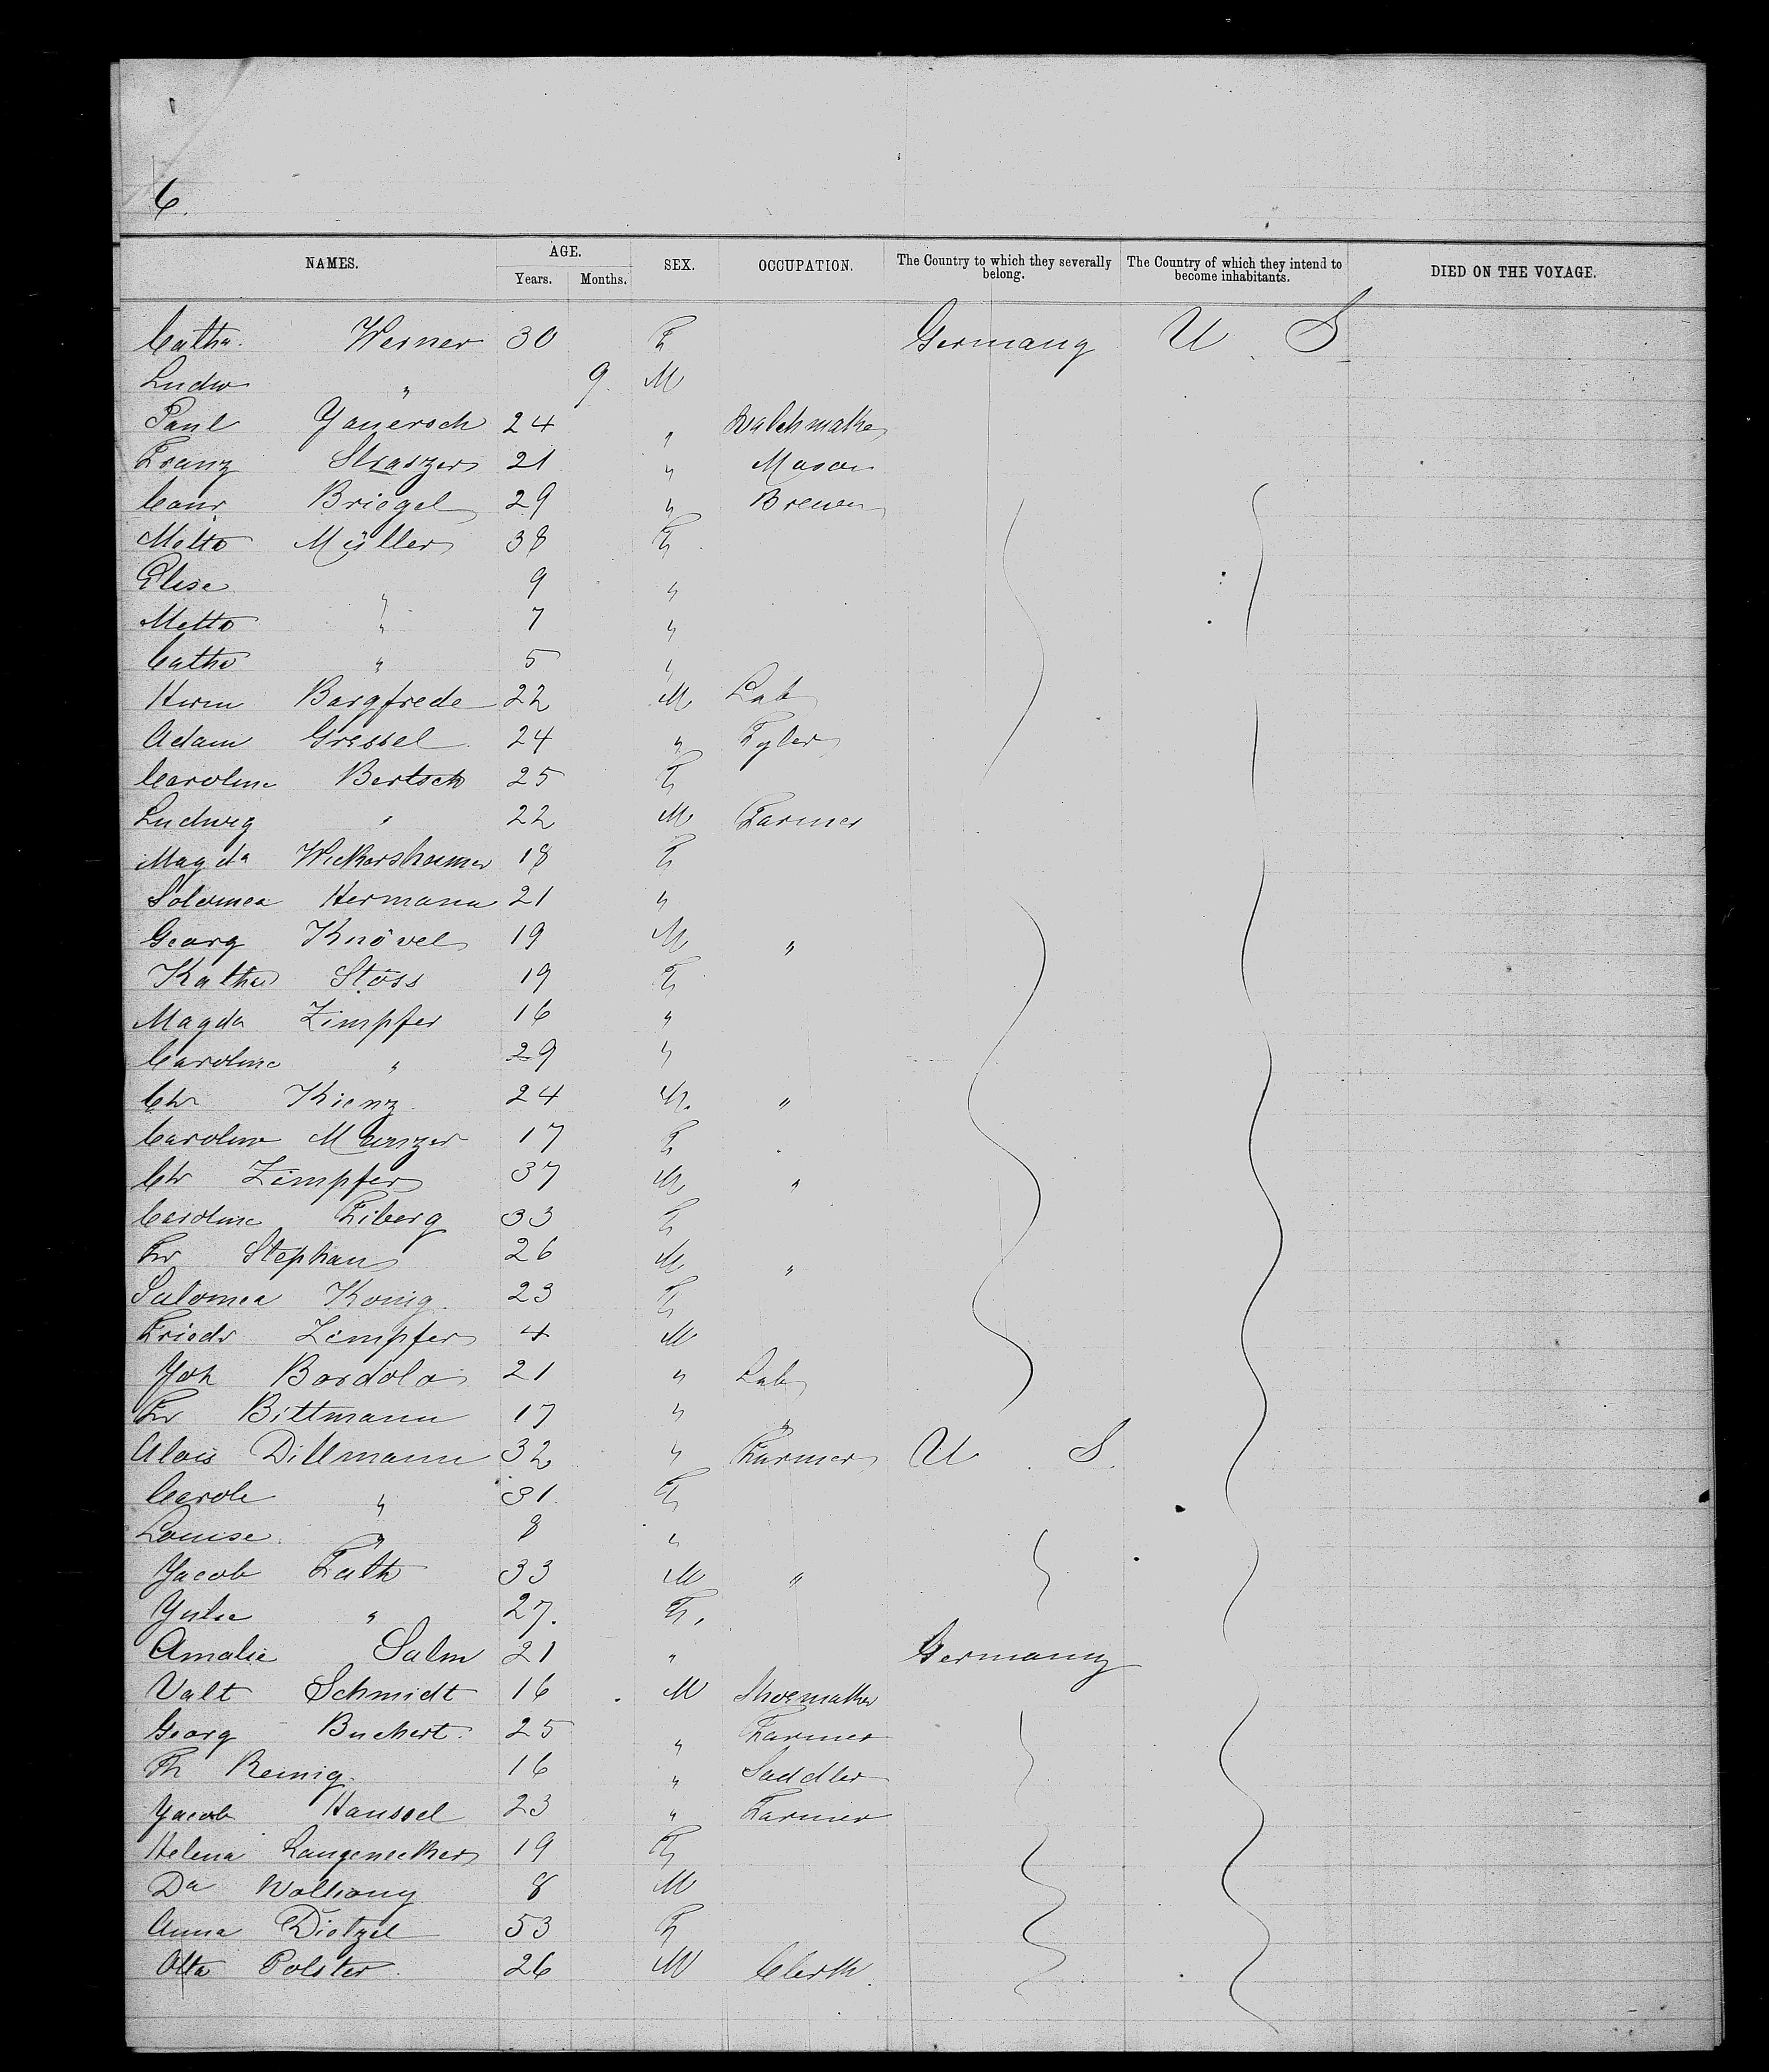 6.
NAMES. AGE. Years. Months. SEX. OCCUPATION. The Country to which they severally belong. The Country of which they intend to become inhabitants. DIED ON THE VOYAGE.
Catha. Werner 30 F Germany U. S.
Ludw " 9. M
Paul Janersch 24 " Watchmaker
Franz Straszer 21 " Mason
Conr. Briegel 29 " Brewer
Metta Müller 38 F
Elise " 9 "
Metta " 7 "
Catha " 5 "
Herm Bargfrede 22 M Lab
Adam Gressel 24 " Tyler
Caroline Bertsch 25 F
Ludwig " 22 M Farmer
Magda Wickersheimer 18 F
Solomea Hermann 21 "
Georg Knövel 19 M "
Katha Stöss 19 F
Magda Zimpfer 16 "
Caroline " 29 "
Chr Kienz 24 M. "
Caroline 17 F
Chr Zimpfer 37 M "
Caroline Fiberg 33 F
Fr Stephan 26 M "
Salomea Konig 23 F
Friedr Zimpfer 4 M
Joh Bardola 21 " Lab
Fr Bittmann 17 " "
Alois Dillmann 32 " Farmer U. S.
Carole " 31 F
Louise " 8 "
Jacob Fath 33 M "
Julie " 27. F.
Amalie Salm 21 " Germany
Valt Schmidt 16 M Shoemaker
Georg Buchert. 25 " Farmer
Th Reinig. 16 " Saddler
Jacob Haussel 23 " Farmer
Helena Langenecker 19 F
Da 8 M
Anna Dietzel 53 F
Otto Polster. 26 M Clerk.